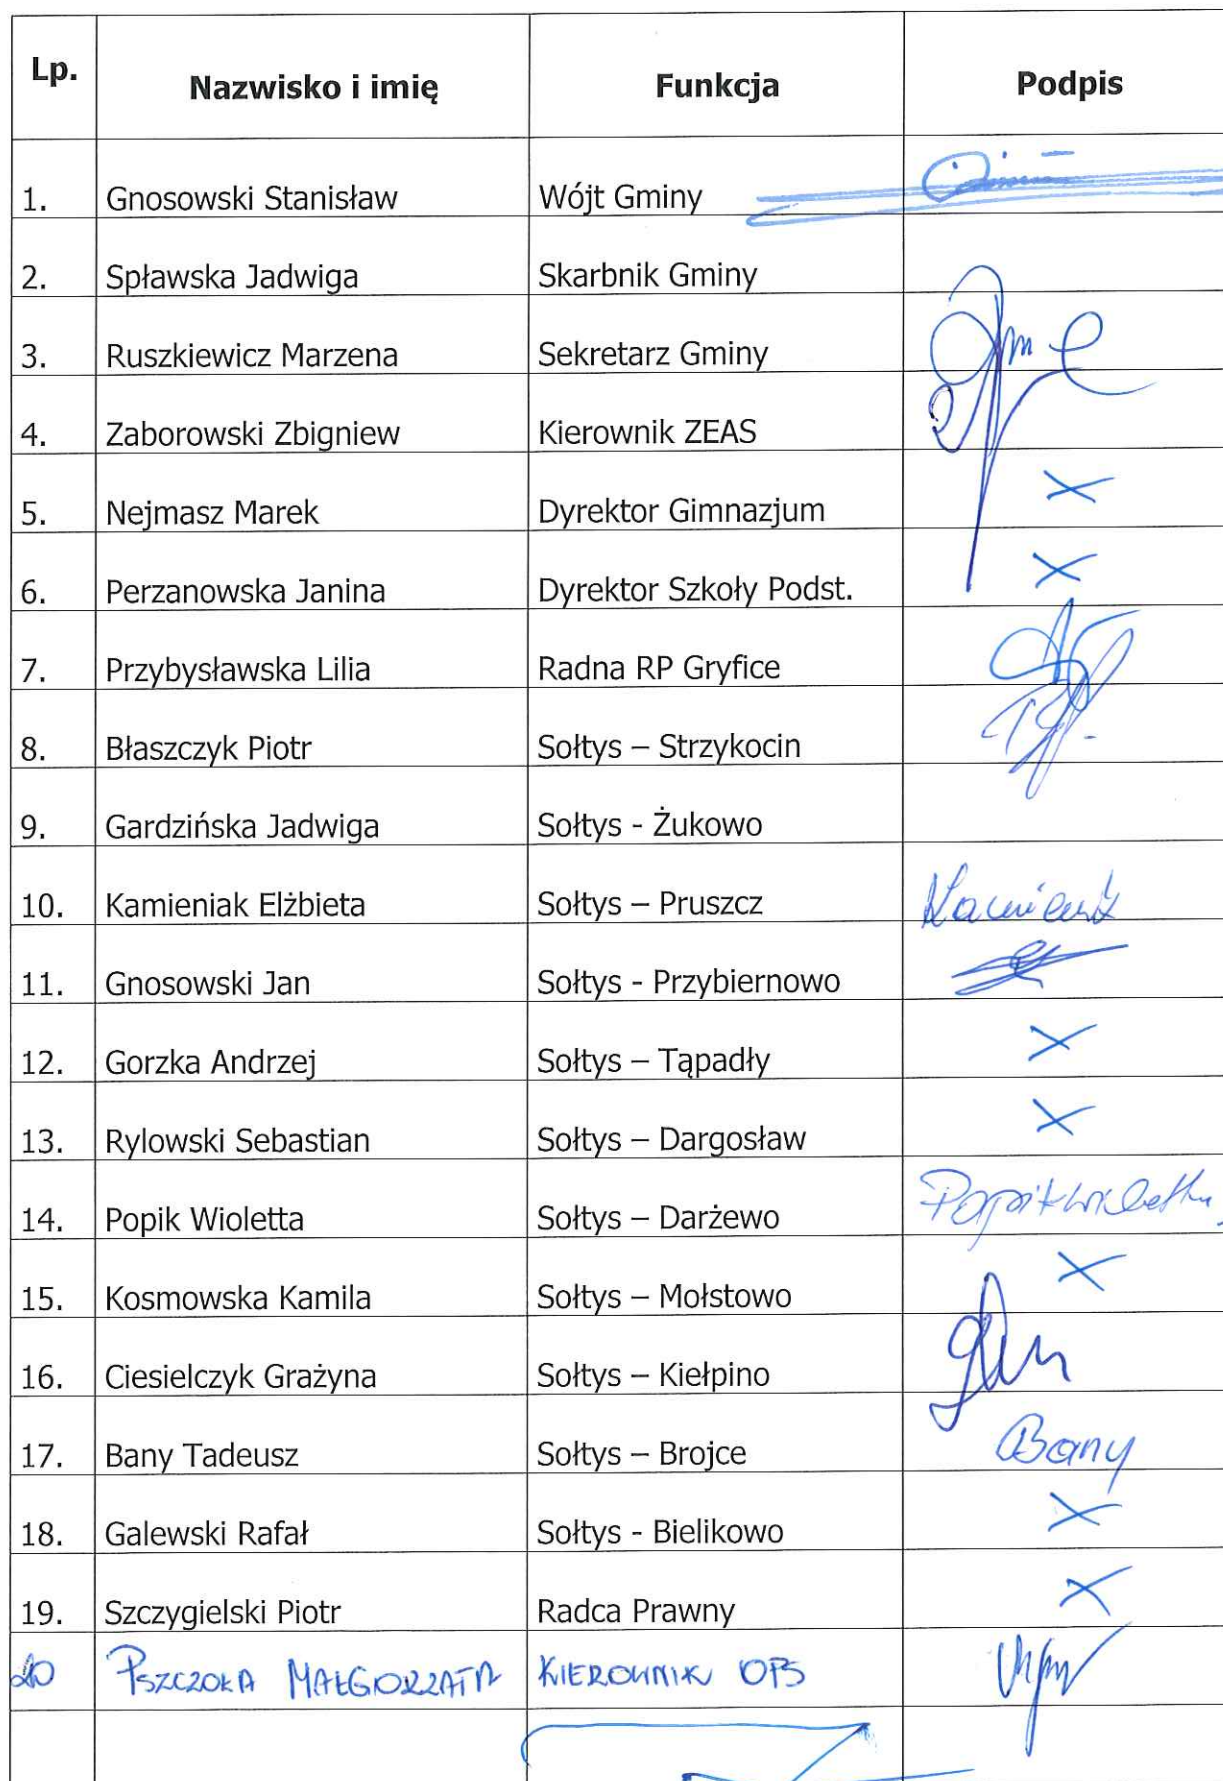 Lp. Nazwisko i imię Funkcja Podpis
1. Gnosowski Stanisław Wójt Gminy
2. Spławska Jadwiga Skarbnik Gminy
3. Ruszkiewicz Marzena Sekretarz Gminy
4. Zaborowski Zbigniew Kierownik ZEAS
5. Nejmasz Marek Dyrektor Gimnazjum
6. Perzanowska Janina Dyrektor Szkoły Podst.
7. Przybysławska Lilia Radna RP Gryfice
8. Błaszczyk Piotr Sołtys – Strzykocin
9. Gardzińska Jadwiga Sołtys - Żukowo
10. Kamieniak Elżbieta Sołtys – Pruszcz Kamieniak
11. Gnosowski Jan Sołtys - Przybiernowo
12. Gorzka Andrzej Sołtys – Tąpadły
13. Rylowski Sebastian Sołtys – Dargosław
14. Popik Wioletta Sołtys – Darżewo Popik Wioletta
15. Kosmowska Kamila Sołtys – Mołstowo
16. Ciesielczyk Grażyna Sołtys – Kiełpino
17. Bany Tadeusz Sołtys – Brojce Bany
18. Galewski Rafał Sołtys - Bielikowo
19. Szczygielski Piotr Radca Prawny
20 PSZCZOŁA MAŁGORZATA KIEROWNIK OPS